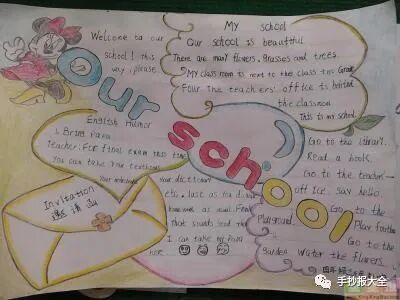 Welcome to our
school! This
way, please.
My school
Our school is beautiful
There are many flowers, grasses and trees.
My class room is next to the class two Grade
Four the teachers' office is behind
the classroom
This is my school.
Our school
English Humor
1. Bring Papa
Teacher: For final exam this time
you can take your textbooks
Your notebooks
your dictionary
etc. last as you do your
home work as usual.
That sounds
I can take my Papa
here
Go to the library.
Read a book.
Go to the teacher
office. say hello.
Go to the
Playground.
Play football
Go to the
garden
Water the flowers.
Invitation
邀请函
四年级
手抄报大全